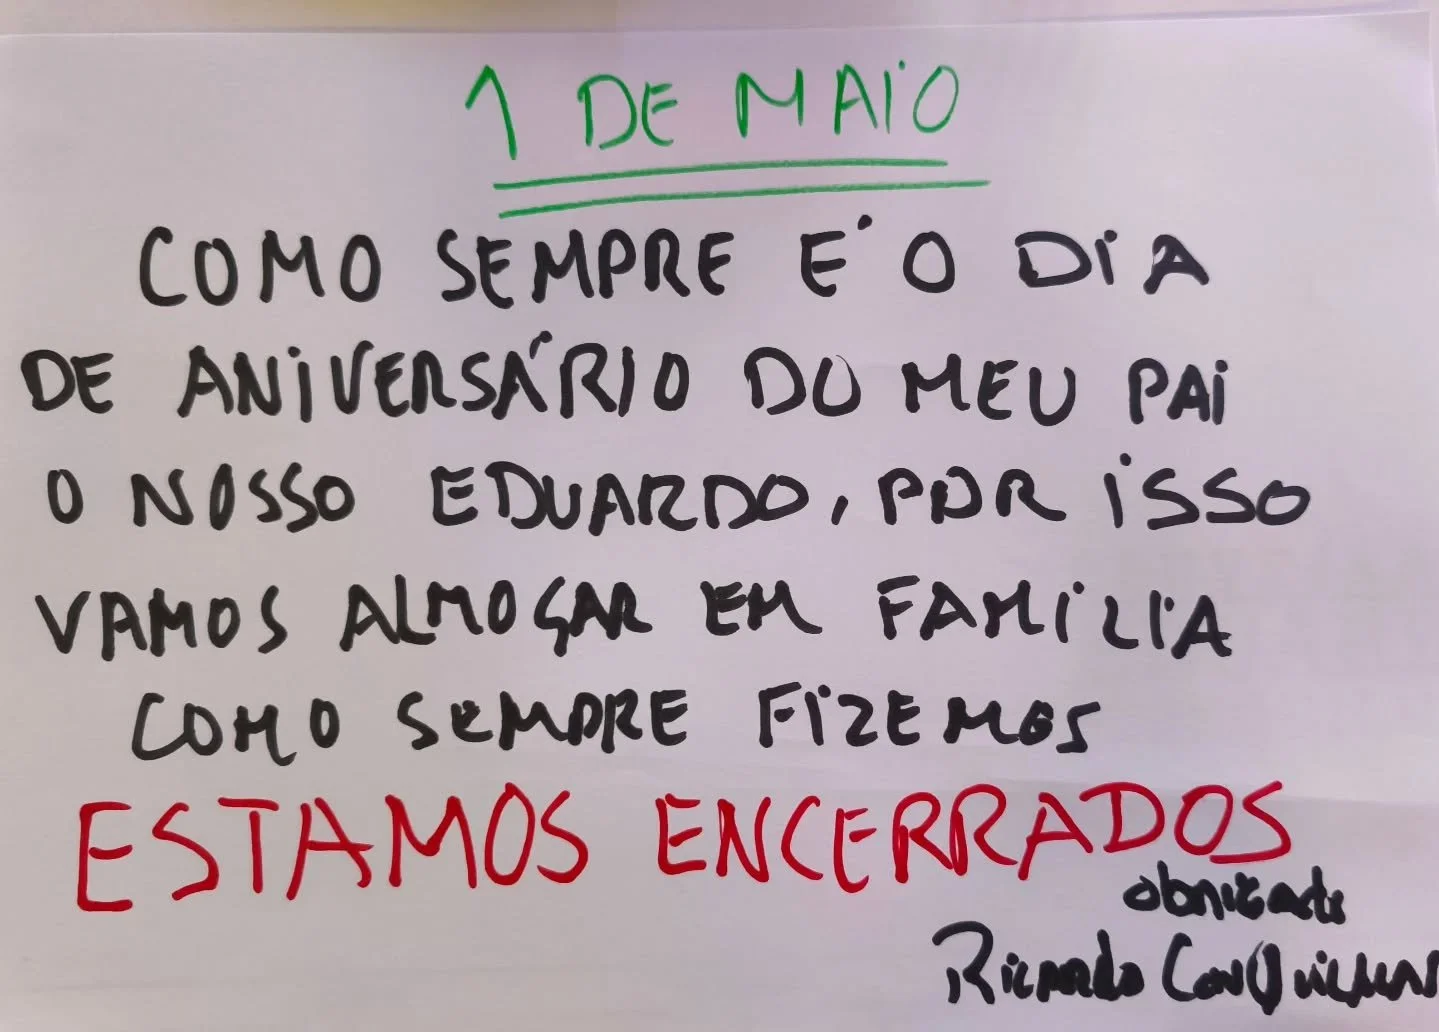 1 DE MAIO
COMO SEMPRE É O DIA
DE ANIVERSÁRIO DO MEU PAI
O NOSSO EDUARDO, POR ISSO
VAMOS ALMOÇAR EM FAMÍLIA
COMO SEMPRE FIZEMOS
ESTAMOS ENCERRADOS
obrigado
Ricardo